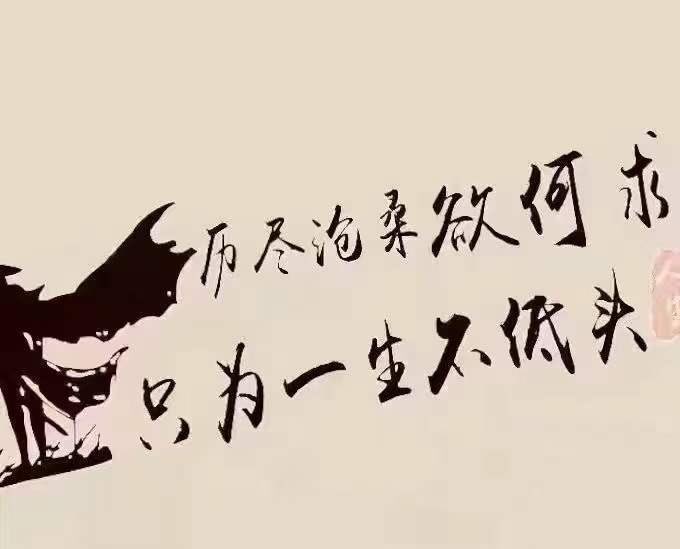 历尽沧桑欲何求
只为一生不低头